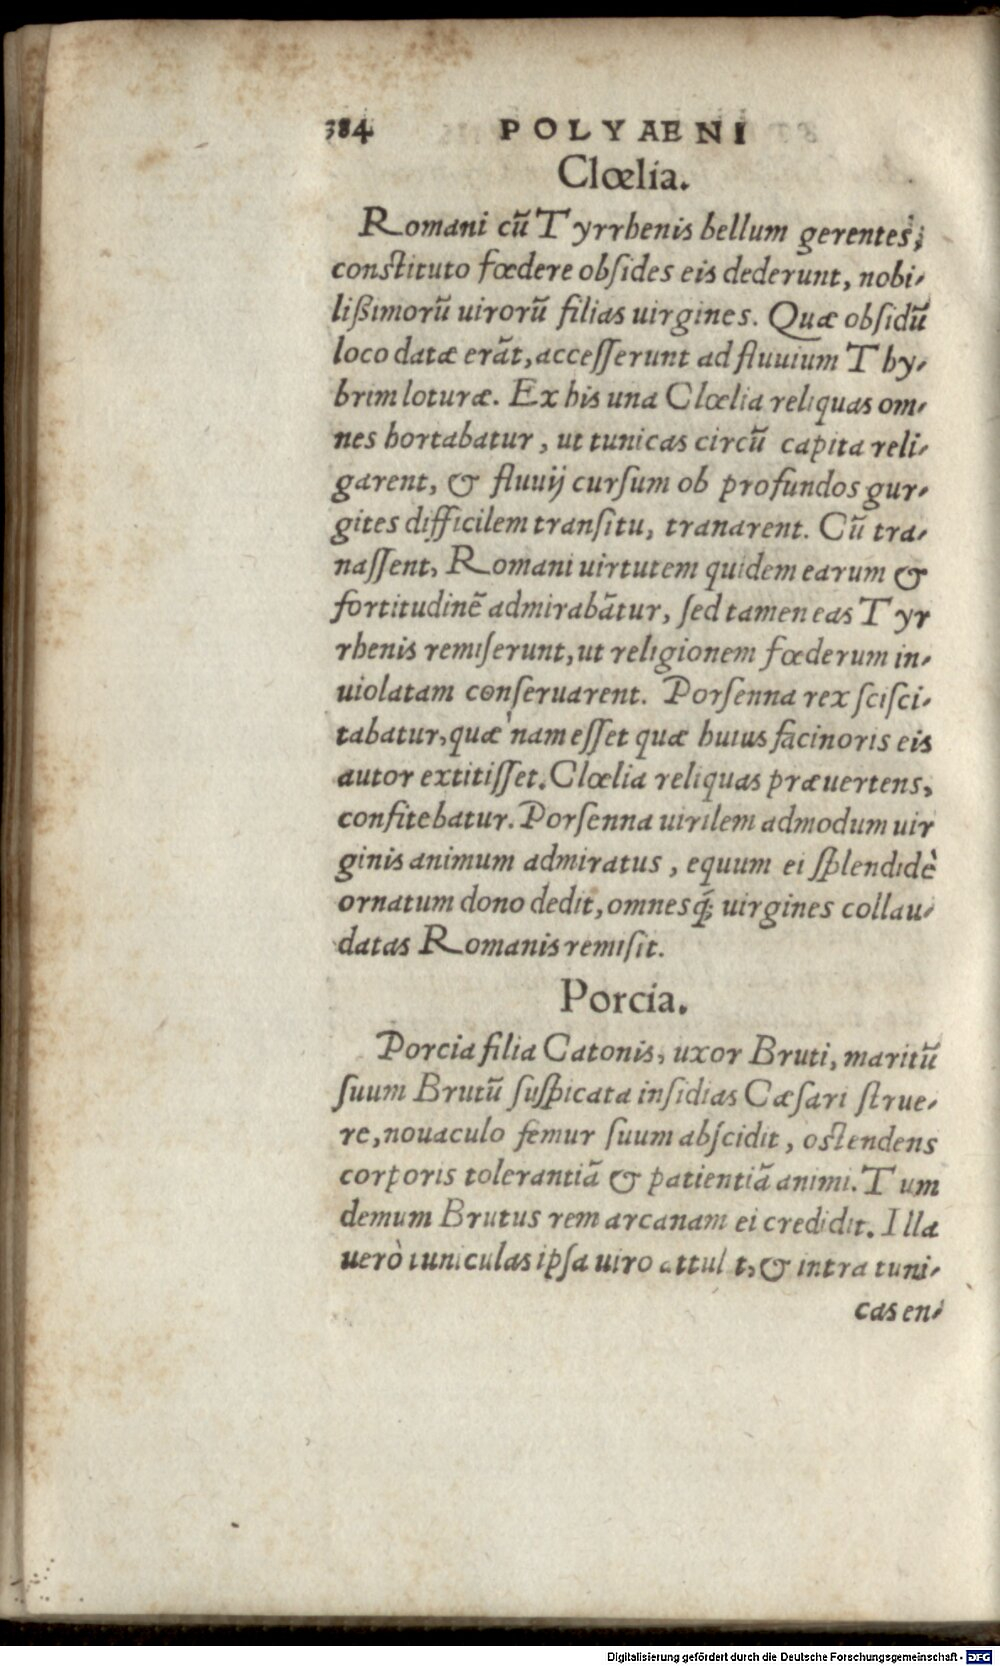 384 POLYAENI
Clœlia.
Romani cũ Tyrrhenis bellum gerentes,
constituto fœdere obsides eis dederunt, nobi-
lißimorũ uirorũ filias uirgines. Quæ obsidũ
loco datæ erãt, accesserunt ad fluuium Thy-
brim loturæ. Ex his una Clœlia reliquas om-
nes hortabatur, ut tunicas circũ capita reli-
garent, & fluuij cursum ob profundos gur-
gites difficilem transitu, tranarent. Cũ tra-
nassent, Romani uirtutem quidem earum &
fortitudinẽ admirabãtur, sed tamen eas Tyr
rhenis remiserunt, ut religionem fœderum in-
uiolatam conseruarent. Porsenna rex scisci-
tabatur, quæ nam esset quæ huius facinoris eis
autor extitisset. Clœlia reliquas præuertens,
confitebatur. Porsenna uirilem admodum uir
ginis animum admiratus, equum ei splendidè
ornatum dono dedit, omnesq́; uirgines collau-
datas Romanis remisit.
Porcia.
Porcia filia Catonis, uxor Bruti, maritũ
suum Brutũ suspicata insidias Cæsari strue-
re, nouaculo femur suum abscidit, ostendens
corporis tolerantiã & patientiã animi. Tum
demum Brutus rem arcanam ei credidit. Illa
uerò iuniculas ipsa uiro attulit, & intra tuni-
cas en-
Digitalisierung gefördert durch die Deutsche Forschungsgemeinschaft - DFG